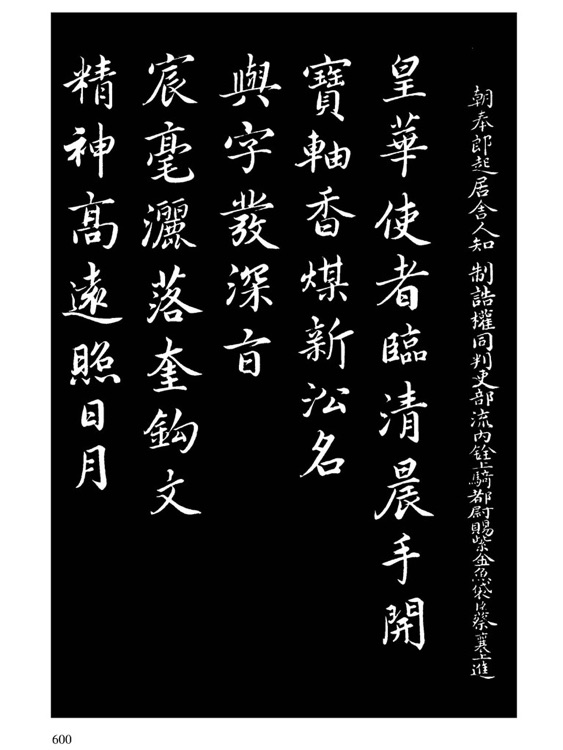 朝奉郎起居舍人知 制誥權同判吏部流內銓上騎都尉賜紫金魚袋臣蔡襄上進
皇華使者臨清晨手開
寶軸香煤新沁名
與字發深旨
宸毫灑落奎鈎文
精神高遠照日月
600